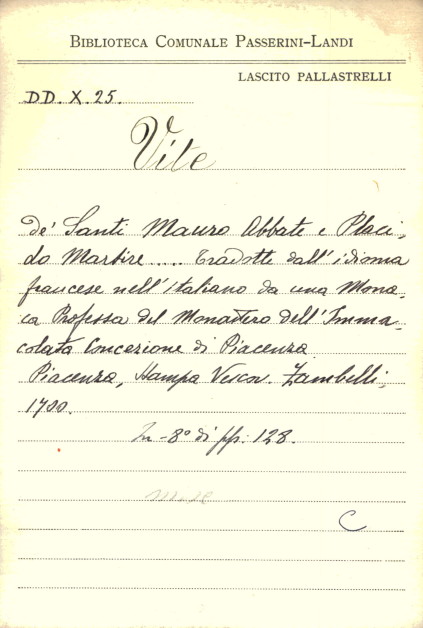 BIBLIOTECA COMUNALE PASSERINI-LANDI
LASCITO PALLASTRELLI
DD. X. 25.
Vite
de' Santi Mauro Abbate e Placi-
do Martire .... tradotte dall'idioma
francese nell'italiano da una Mona-
ca Professa del Monastero dell'Imma-
colata Concezione di Piacenza
Piacenza, Stampa Vescov. Zambelli,
1700.
In-8° di pp. 128.
C